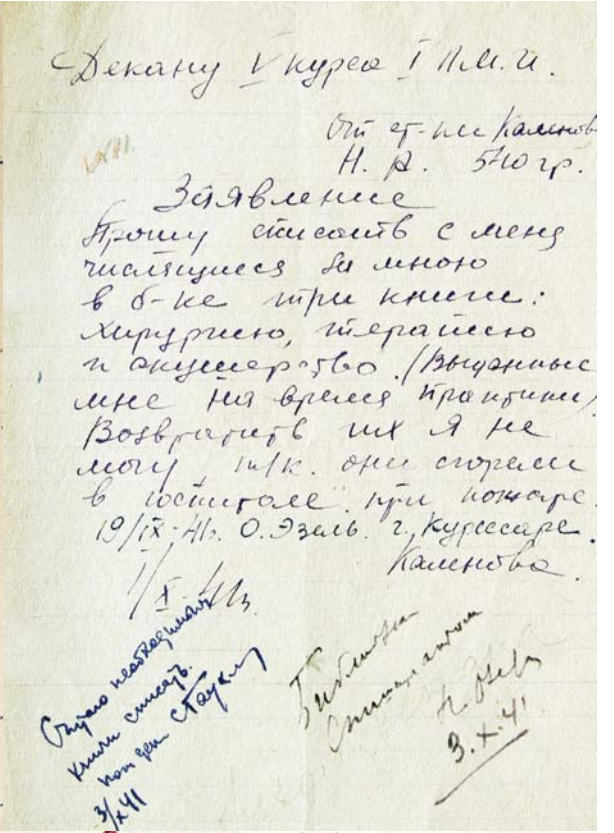 Декану V курса I Л.М.И.
От ст-ки Каленова
Н. А. 540 гр.
Заявление
Прошу списать с меня
числящиеся за мною
в б-ке три книги:
хирургию, терапию
и акушерство. (Выданные
мне на время практики)
Возвратить их я не
могу т/к. они сгорели
в госпитале при пожаре.
19/IX-41г. О. Эзель. г. Курессаре.
Каленова.
1/X-41г.
Считаю необходимым
книги списать.
3/X 41
Библиотека
3.X.41